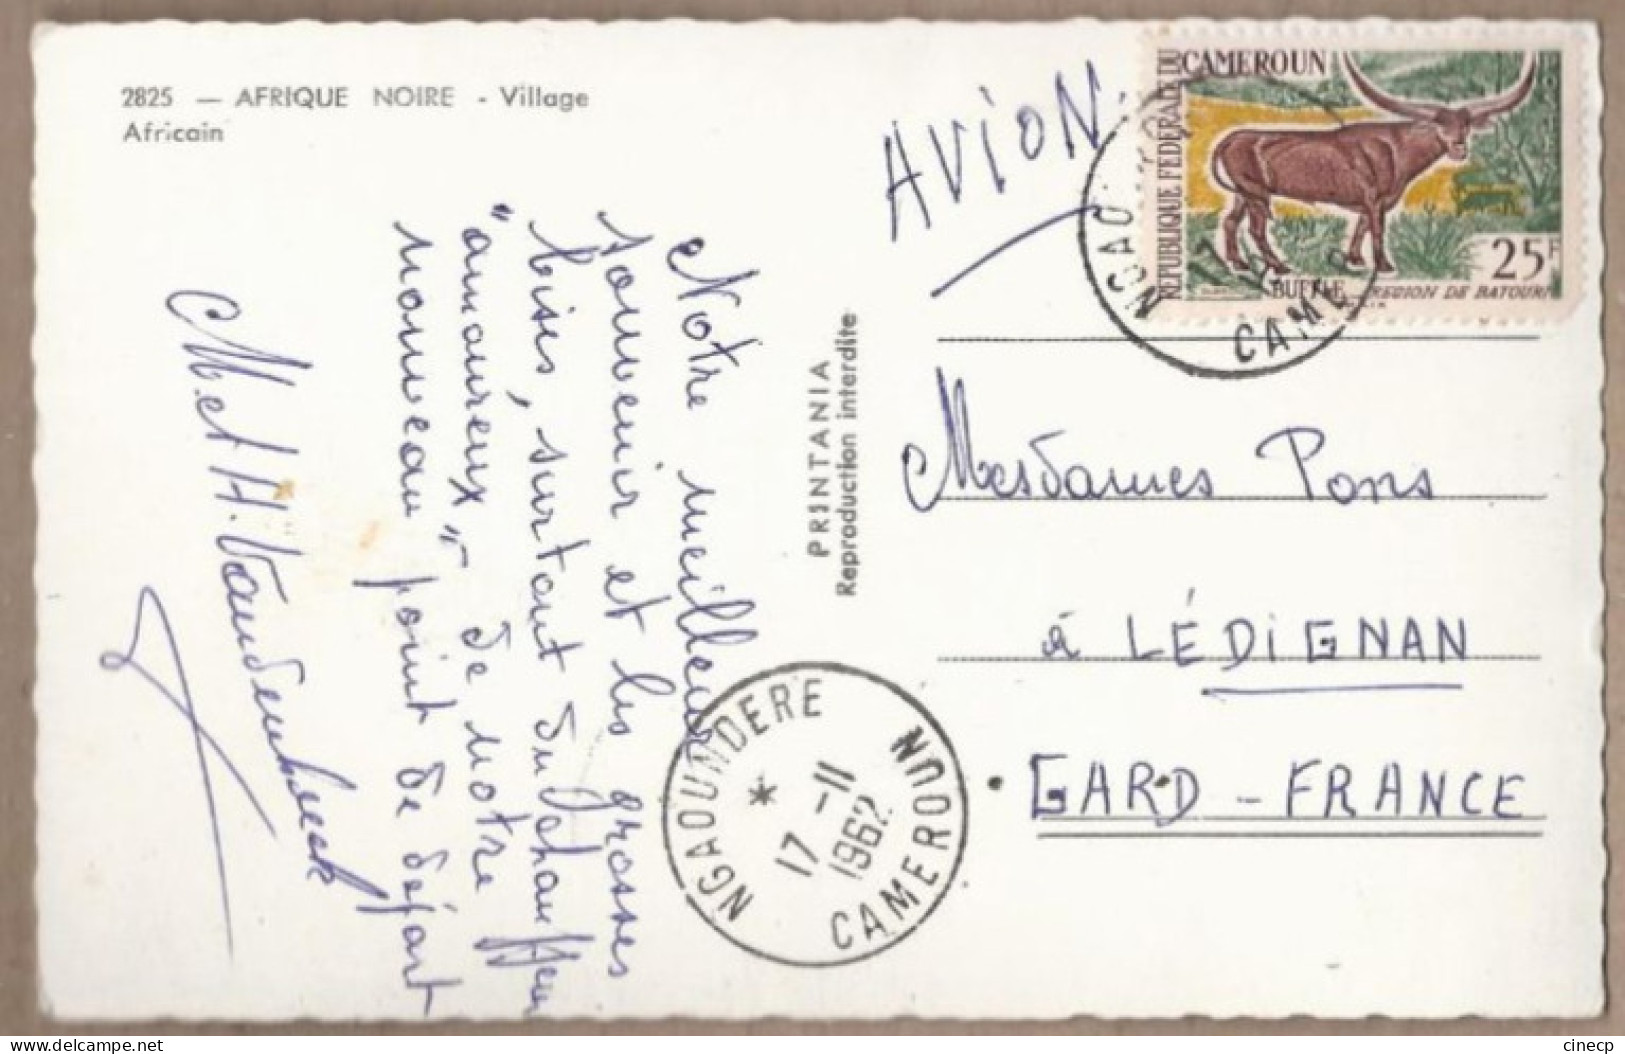 2825 — AFRIQUE NOIRE - Village
Africain
AVION
RÉPUBLIQUE FÉDÉRALE DU
CAMEROUN
25F
BUFFLE
REGION DE BATOURI
CAMER
Notre meilleur
souvenir et les grosses
bises, surtout du chauffeur
"amoureux" de notre
nouveau point de départ
M. et H. Vandenbeek
PRINTANIA
Reproduction interdite
Mesdames Pons
à LÉDIGNAN
GARD - FRANCE
NGAOUNDERE
17 -11
1962
CAMEROUN
delcampe.net
cinecp